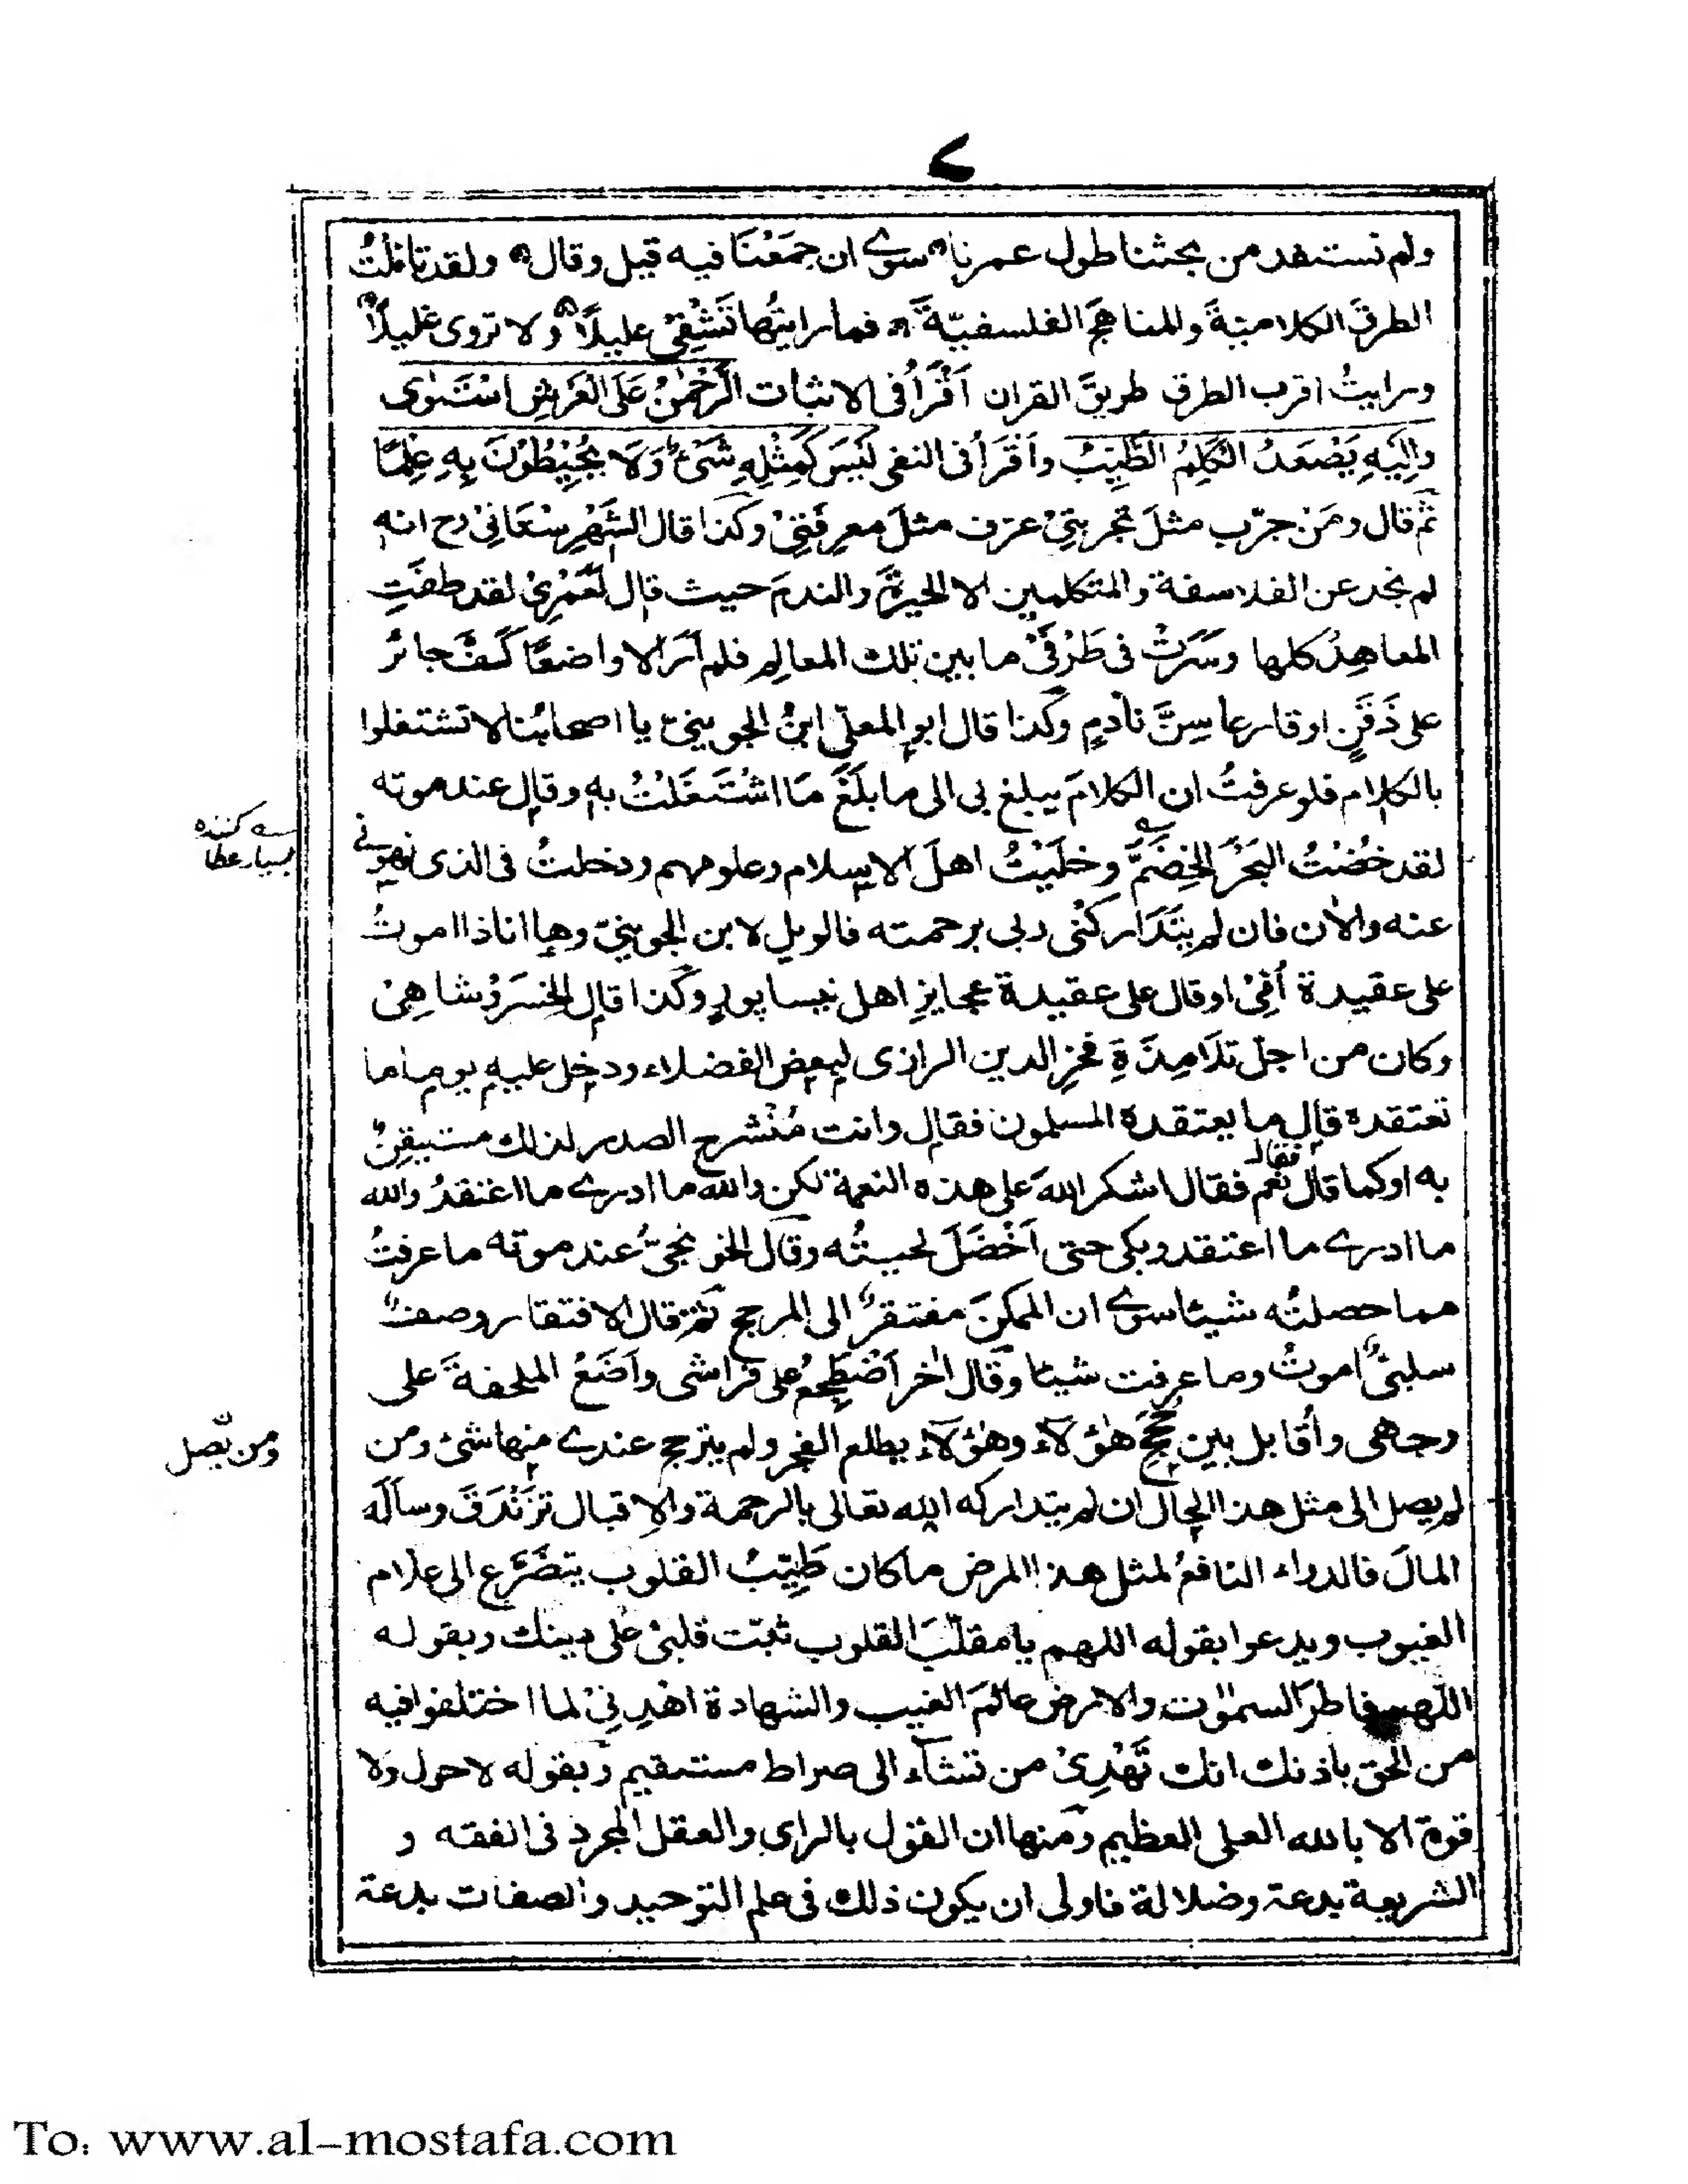 ے
ولم نستفد من بحثنا طول عمرنا سوے ان جمَعْنَا فيه قيل وقال ولقد تاملتُ
الطرقَ الكلاميّةَ والمناهجَ الفلسفيّةَ فما رايتُها تَشْفِىْ عليلًا ولا تروى غليلًا
ورايتُ اقرب الطرق طريقَ القران اَقْرَأُ فى الاثبات الرَّحْمٰنُ عَلَى الْعَرْشِ اسْتَوٰى
وَاِلَيْهِ يَصْعَدُ الْكَلِمُ الطَّيِّبُ واَقْرَأُ فى النفى لَيْسَ كَمِثْلِهِ شَىْءٌ وَلَا يُحِيْطُوْنَ بِهٖ عِلْمًا
ثم قال ومَنْ جرّب مثلَ تجربتِىْ عرف مثلَ معرِفَتِىْ وكذا قال الشَهْرِسْتَانِىْ رح انه
لم يجد عن الفلاسفة والمتكلمين الا الحيرةَ والندمَ حيث قال لَعَمْرِىْ لقد طفتِ
المعاهِدَ كلها وسَيَّرتْ فى طَرْفَىْ ما بين تلك المعالِمِ فلم اَرَ الا واضعًا كَفَّ حائرٍ
على ذَقَنٍ او قارعا سِنَّ نادمٍ وكذا قال ابو المعلى ابنُ الجوينىّ يا اصحابُنا لا تشتغلوا
بالكلام فلو عرفتُ ان الكلامَ يبلغ بى الى ما بَلَغَ مَا اشْتَغَلْتُ به وقال عند موته
لقد خُضْتُ البَحْرَ الخِضَمَّ وخلَّيْتُ اهلَ الاسلام وعلومهم ودخلتُ فى الذى نهونى
عنه والاٰن فان لم يَتَدَارَكْنِى ربى برحمته فالويل لابن الجوينىّ وها انا ذا اموتُ
على عقيدة اُمِّىْ او قال على عقيدة عجايزِ اهل نيسابور وكذا قال الخسرَوْشاهِىْ
وكان من اجل تلَامِذَةِ فخرِ الدين الرازى لبعض الفضلاء ودخل عليه يوما ما
تعتقده قال ما يعتقده المسلمون فقال وانت مُنْشرح الصدر لذلك مستيقِنٌ
فقال
به او كما قال نعم فقال اشكر اللهَ على هذه النعمة لكن والله ما ادرے ما اعتقدُ والله
ما ادرے ما اعتقد وبكى حتى اَخْضَلَ لحيتُه وقال الخونجىّ عند موته ما عرفتُ
مما حصلتُه شيئا سوے ان الممكنَ مفتقرٌ الى المرجح ثم قال الافتقار وصفٌ
سلبىٌّ اموتُ وما عرفت شيئا وقال اٰخر اَضْطَجِعُ على فراشى واَضَعُ الملحفةَ على
وجهى واُقابل بين حُجَجِ هٰؤلَاءِ وهٰؤلَاءِ يطلع الفجر ولم يترجح عندے منها شئ ومن
لم يصل الى مثل هذا الحال ان لم يتداركه الله تعالى بالرحمة والاقبال تزَنْدَقَ وسآلَه
المالَ فالدواء النافعُ لمثل هذا المرض ما كان طَبِيْبُ القلوب يتضرَّع الى علام
الغيوب ويدعوا بقوله اللهم يا مقلّبَ القلوب ثبّت قلبىْ على دينك وبقوله
اللّهم فاطرَ السمٰوٰت والارض عالمَ الغيب والشهادة اهْدِنِىْ لما اختلفوا فيه
من الحق باذنك انك تَهْدِىْ من تشآء الى صراط مستقيم وبقوله لا حول ولا
قوة الا بالله العلى العظيم ومنها ان القول بالراى والعقل المجرد فى الفقه و
الشريعة بدعة وضلالة فاولى ان يكون ذلك فى علم التوحيد والصفات بدعة
بسيار عطا
ومن يصل
To: www.al-mostafa.com